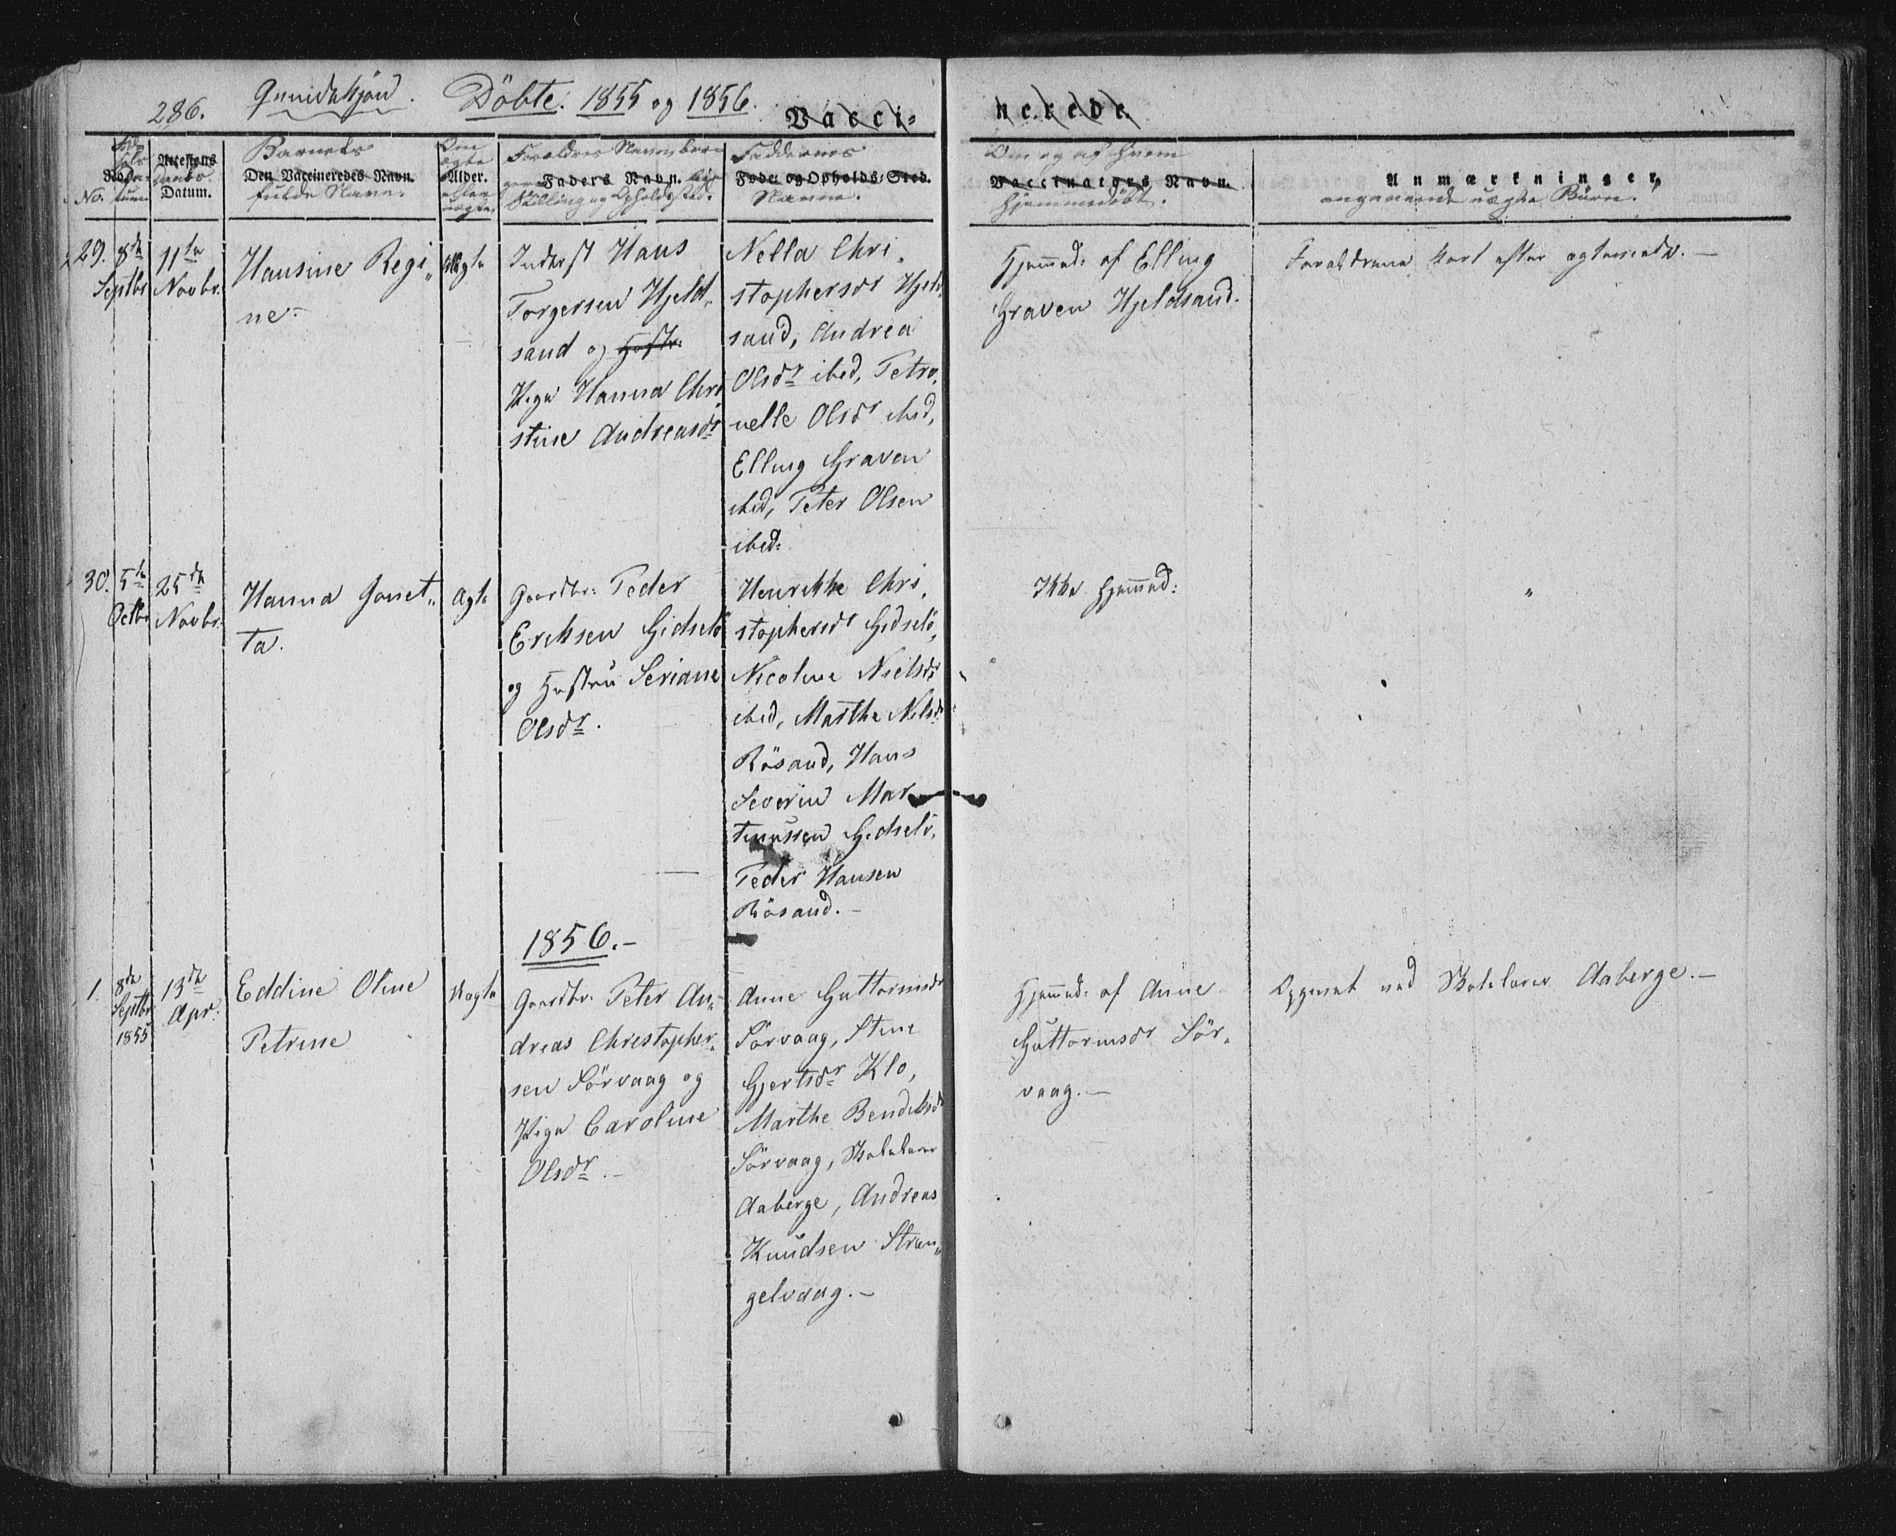 286. Qvindekjön. Döbte. 1855 og 1856.
Vacci-
nerede.
No.
Fødselsdatum
Attestens
Daabs
Datum.
Barnets
Den Vaccineredes Navn.
fulde Navn.
Om ægte
Alder.
eller uægte
Forældres Navn,
Faders Navn.
Stilling og Opholdssted.
Faddernes
Føde- og Opholds-Sted.
Navne.
Om og af hvem
Vaccinatørs Navn.
hjemmedöbt.
Anmærkninger,
angaaende uægte Börn.
29.
8de
Septbr
11te
Novbr.
Hansine Regi-
ne.
Inderst Hans
Torgersen Hjeld-
sand og Hustr:
Pige Hanna Chri-
stine Andreasdr
Nella Chri-
stophersdr Hjeld-
sand, Andrea
Olsdr ibid, Petro-
nelle Olsdr ibid,
Elling Graven
ibid, Peter Olsen
ibid.
Hjemmed: af Elling
Graven Hjeldsand.
Forældrene kort efter ægteviede. —
30.
5te
Octbr
25de
Novbr.
Hanna Jonet-
ta.
Ægte
Gaardbr: Peder
Eriksen Gidselö
og Hustru Seriane
Olsdr.
Henrikke Chri-
stophersdr Gidselö,
Nicoline Nielsdr
ibid, Marthe Nilsdr
Rösand, Hans
Severin Mar-
tinussen Gidselö,
Peder Hansen
Rösand. —
Ikke hjemmed:
"
1856. —
1.
8de
Septbr
1855
13de
Apr.
Eddine Oline
Petrine
Uægte
Gaardbr. Peter An-
dreas Christopher-
sen Sörvaag og
Pige Caroline
Olsdr. —
Anne Guttormsdr
Sörvaag, Stine
Gjertsdr Klo,
Marthe Bendiksdr
Sörvaag, Skolelærer
Aaberge, Andreas
Knudsen Stran-
gelvaag. —
Hjemmed: af Anne
Guttormsdr Sör-
vaag. —
Opgivet ved Skolelærer Aaberge. —